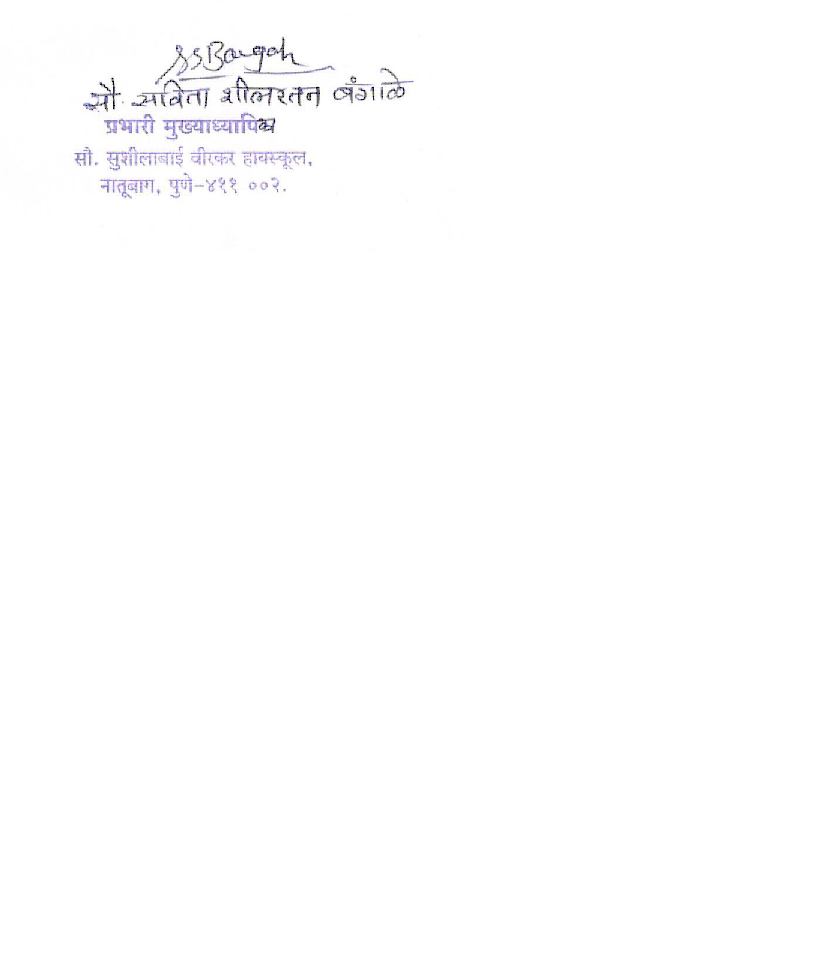 SSBangale
सौ. सविता शीलरतन बंगाळे
प्रभारी मुख्याध्यापिका
सौ. सुशीलाबाई वीरकर हायस्कूल,
नातूबाग, पुणे-४११ ००२.